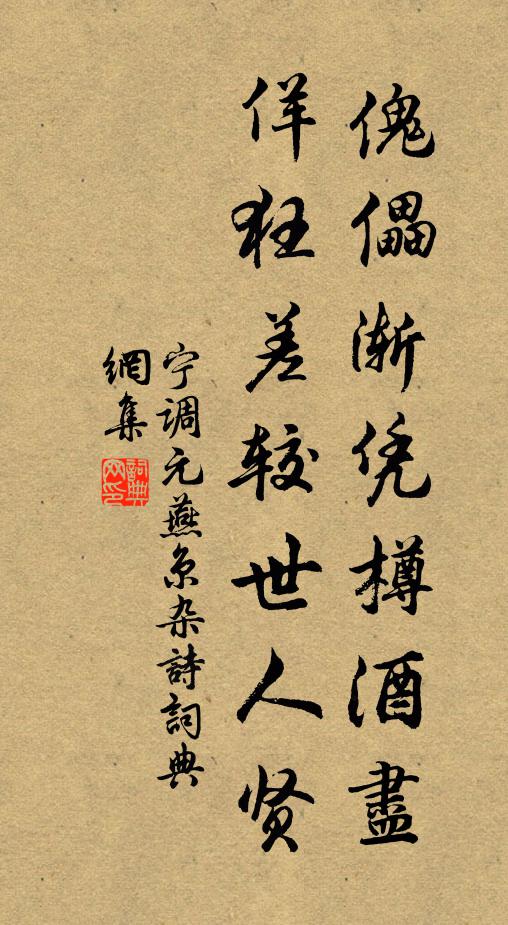 傀儡渐凭樽酒盡
佯狂差较世人贤
宁调元燕京杂詩詞典
網集
詞典網印